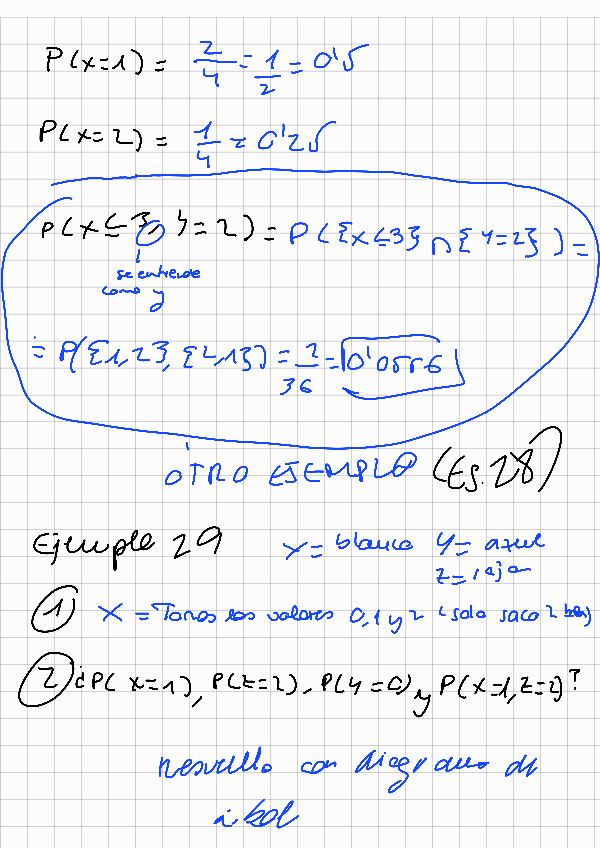 P(x=1) = 2/4 = 1/2 = 0'5
P(x=2) = 1/4 = 0'25
P(x≤3, y=2) = P({x≤3} ∩ {y=2}) =
se entiende
como y
= P({1,2}, {2,1}) = 2/36 = 0'0556
OTRO EJEMPLO (Ej.28)
Ejemplo 29 X= blanca Y= azul
Z= roja
1 X = Toma los valores 0,1 y 2 (solo saco 2 )
2 ¿P(x=1), P(z=2), P(y=0) y P(x=1,z=2)?
Resuelto con diagrama de
árbol